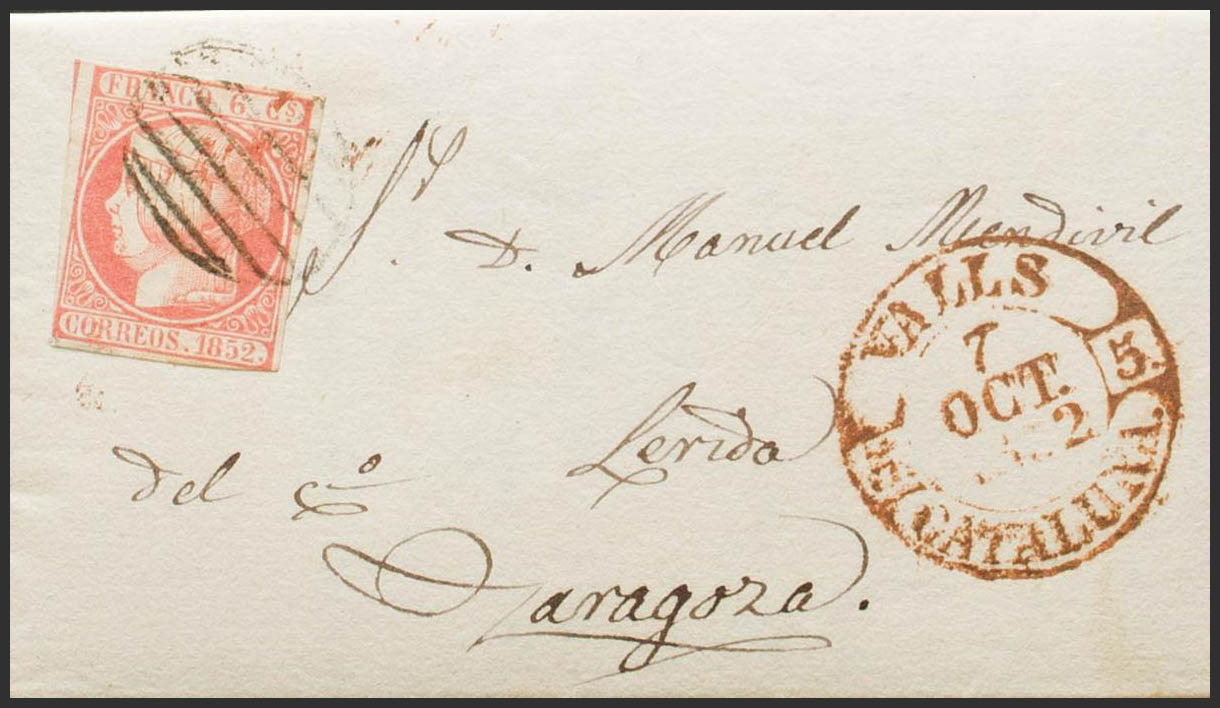 FRANCO. 6 Cs
CORREOS. 1852.
Sr. D. Manuel Mendivil
del Co Lerida
Zaragoza.
VALLS
7
OCT.
5.
CATALUÑA.